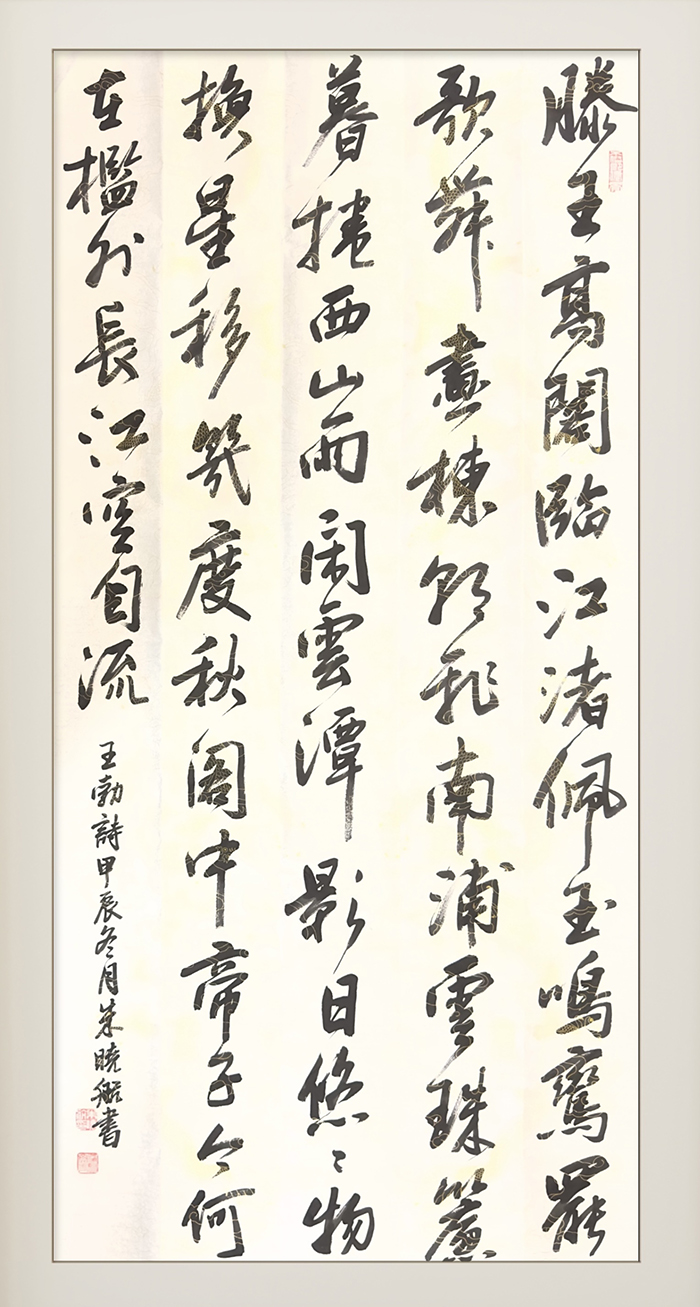 滕王高閣臨江渚佩玉鳴鸞罷
歌舞畫棟朝飛南浦雲珠簾
暮捲西山雨闲雲潭影日悠〻物
換星移幾度秋阁中帝子今何
在檻外長江空自流
王勃詩甲辰冬月朱曉書